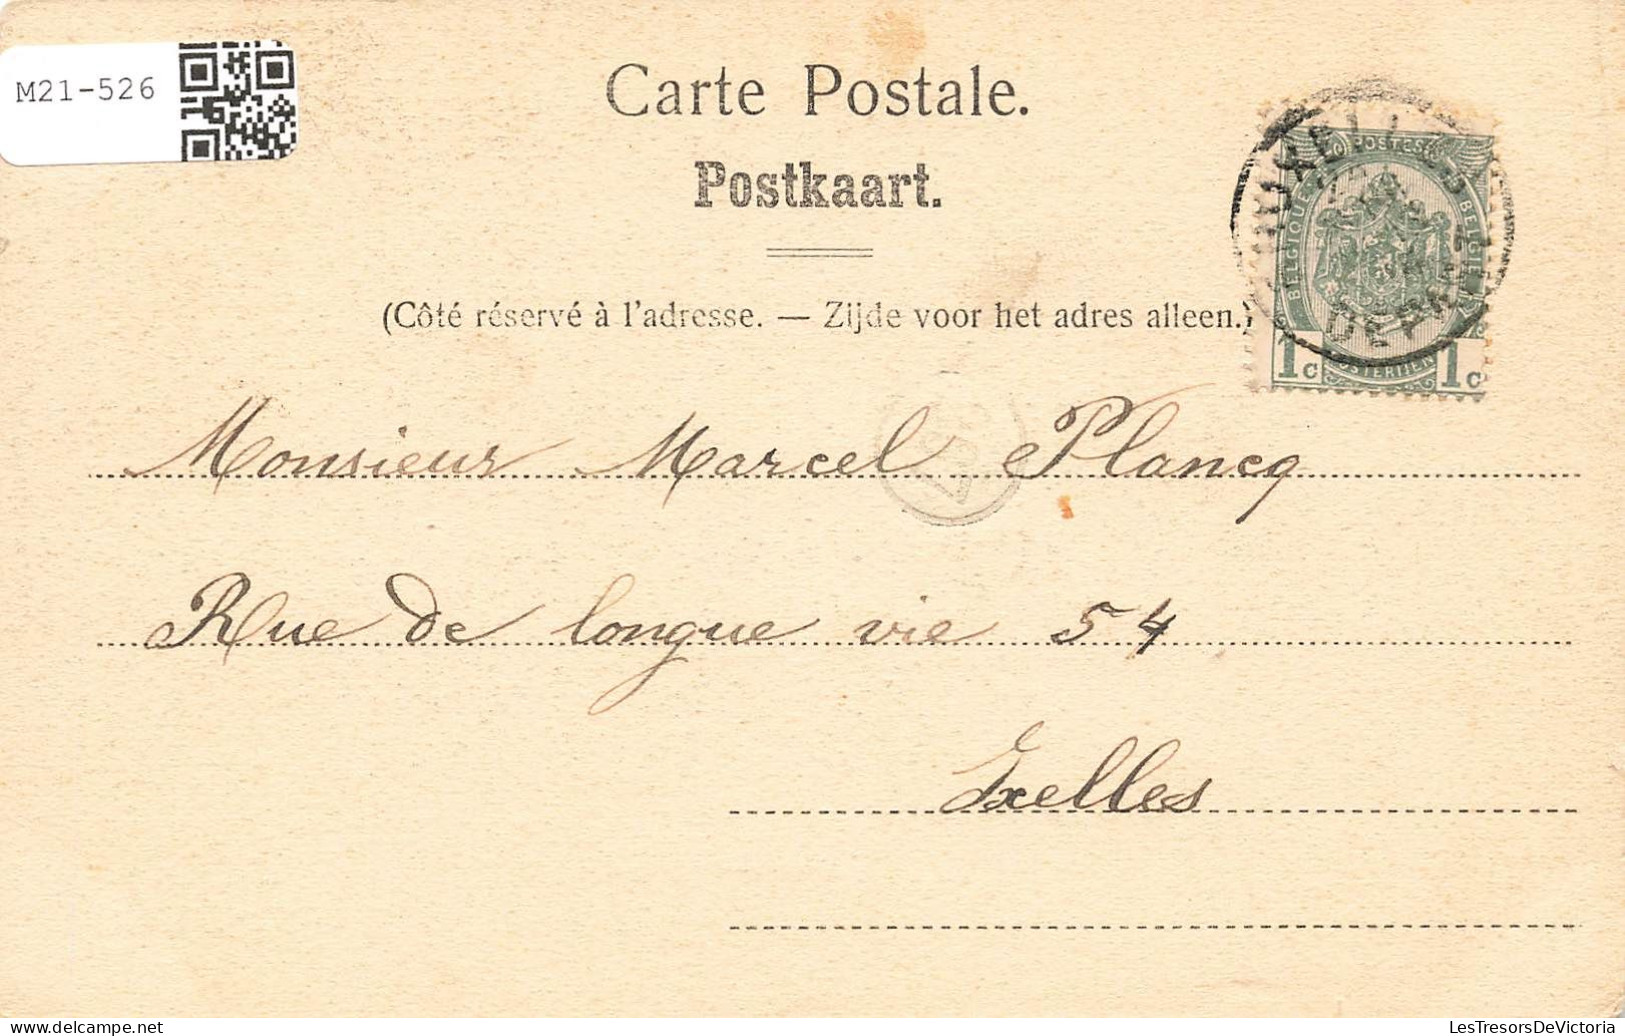 M21-526
Carte Postale.
Postkaart.
(Côté réservé à l'adresse. — Zijde voor het adres alleen.)
POSTES
BELGIQUE
BELGIË
1c 1c
DEPART
Monsieur Marcel Plancq
Rue de longue vie 54
Ixelles
delcampe.net
LesTresorsDeVictoria